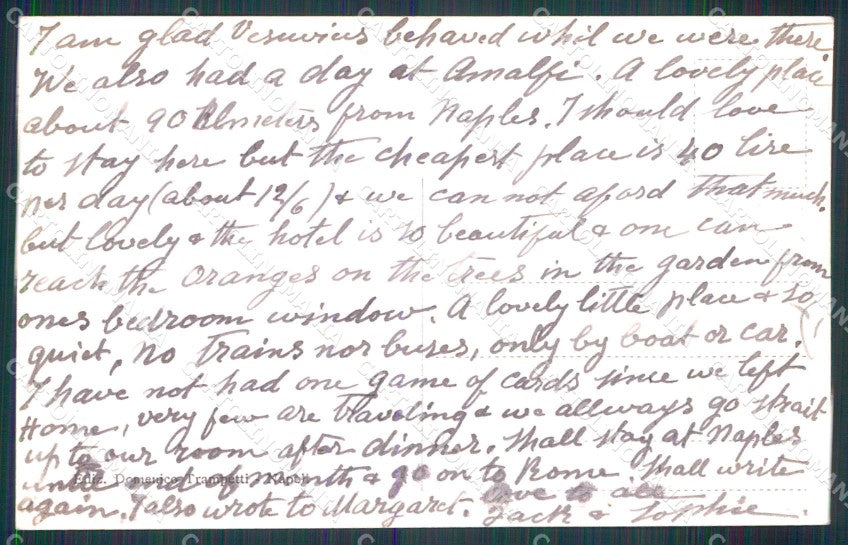 I am glad Vesuvius behaved whil we were there
We also had a day at Amalfi. A lovely place
about 90 klmeters from Naples. I should love
to stay here but the cheapest place is 40 lire
per day (about 12/6) & we can not aford that much.
but lovely & the hotel is so beautiful & one can
reach the oranges on the trees in the garden from
ones bedroom window. A lovely little place & so
quiet, no trains nor buses, only by boat or car.
I have not had one game of cards since we left
Home, very few are traveling & we allways go strait
up to our room after dinner. Shall stay at Naples
until end of month & go on to Rome. Shall write
Ediz. Domenico Trampetti - Napoli
again. I also wrote to Margaret. love to all
Jack & Sophie.
CARTOLINOMANIA